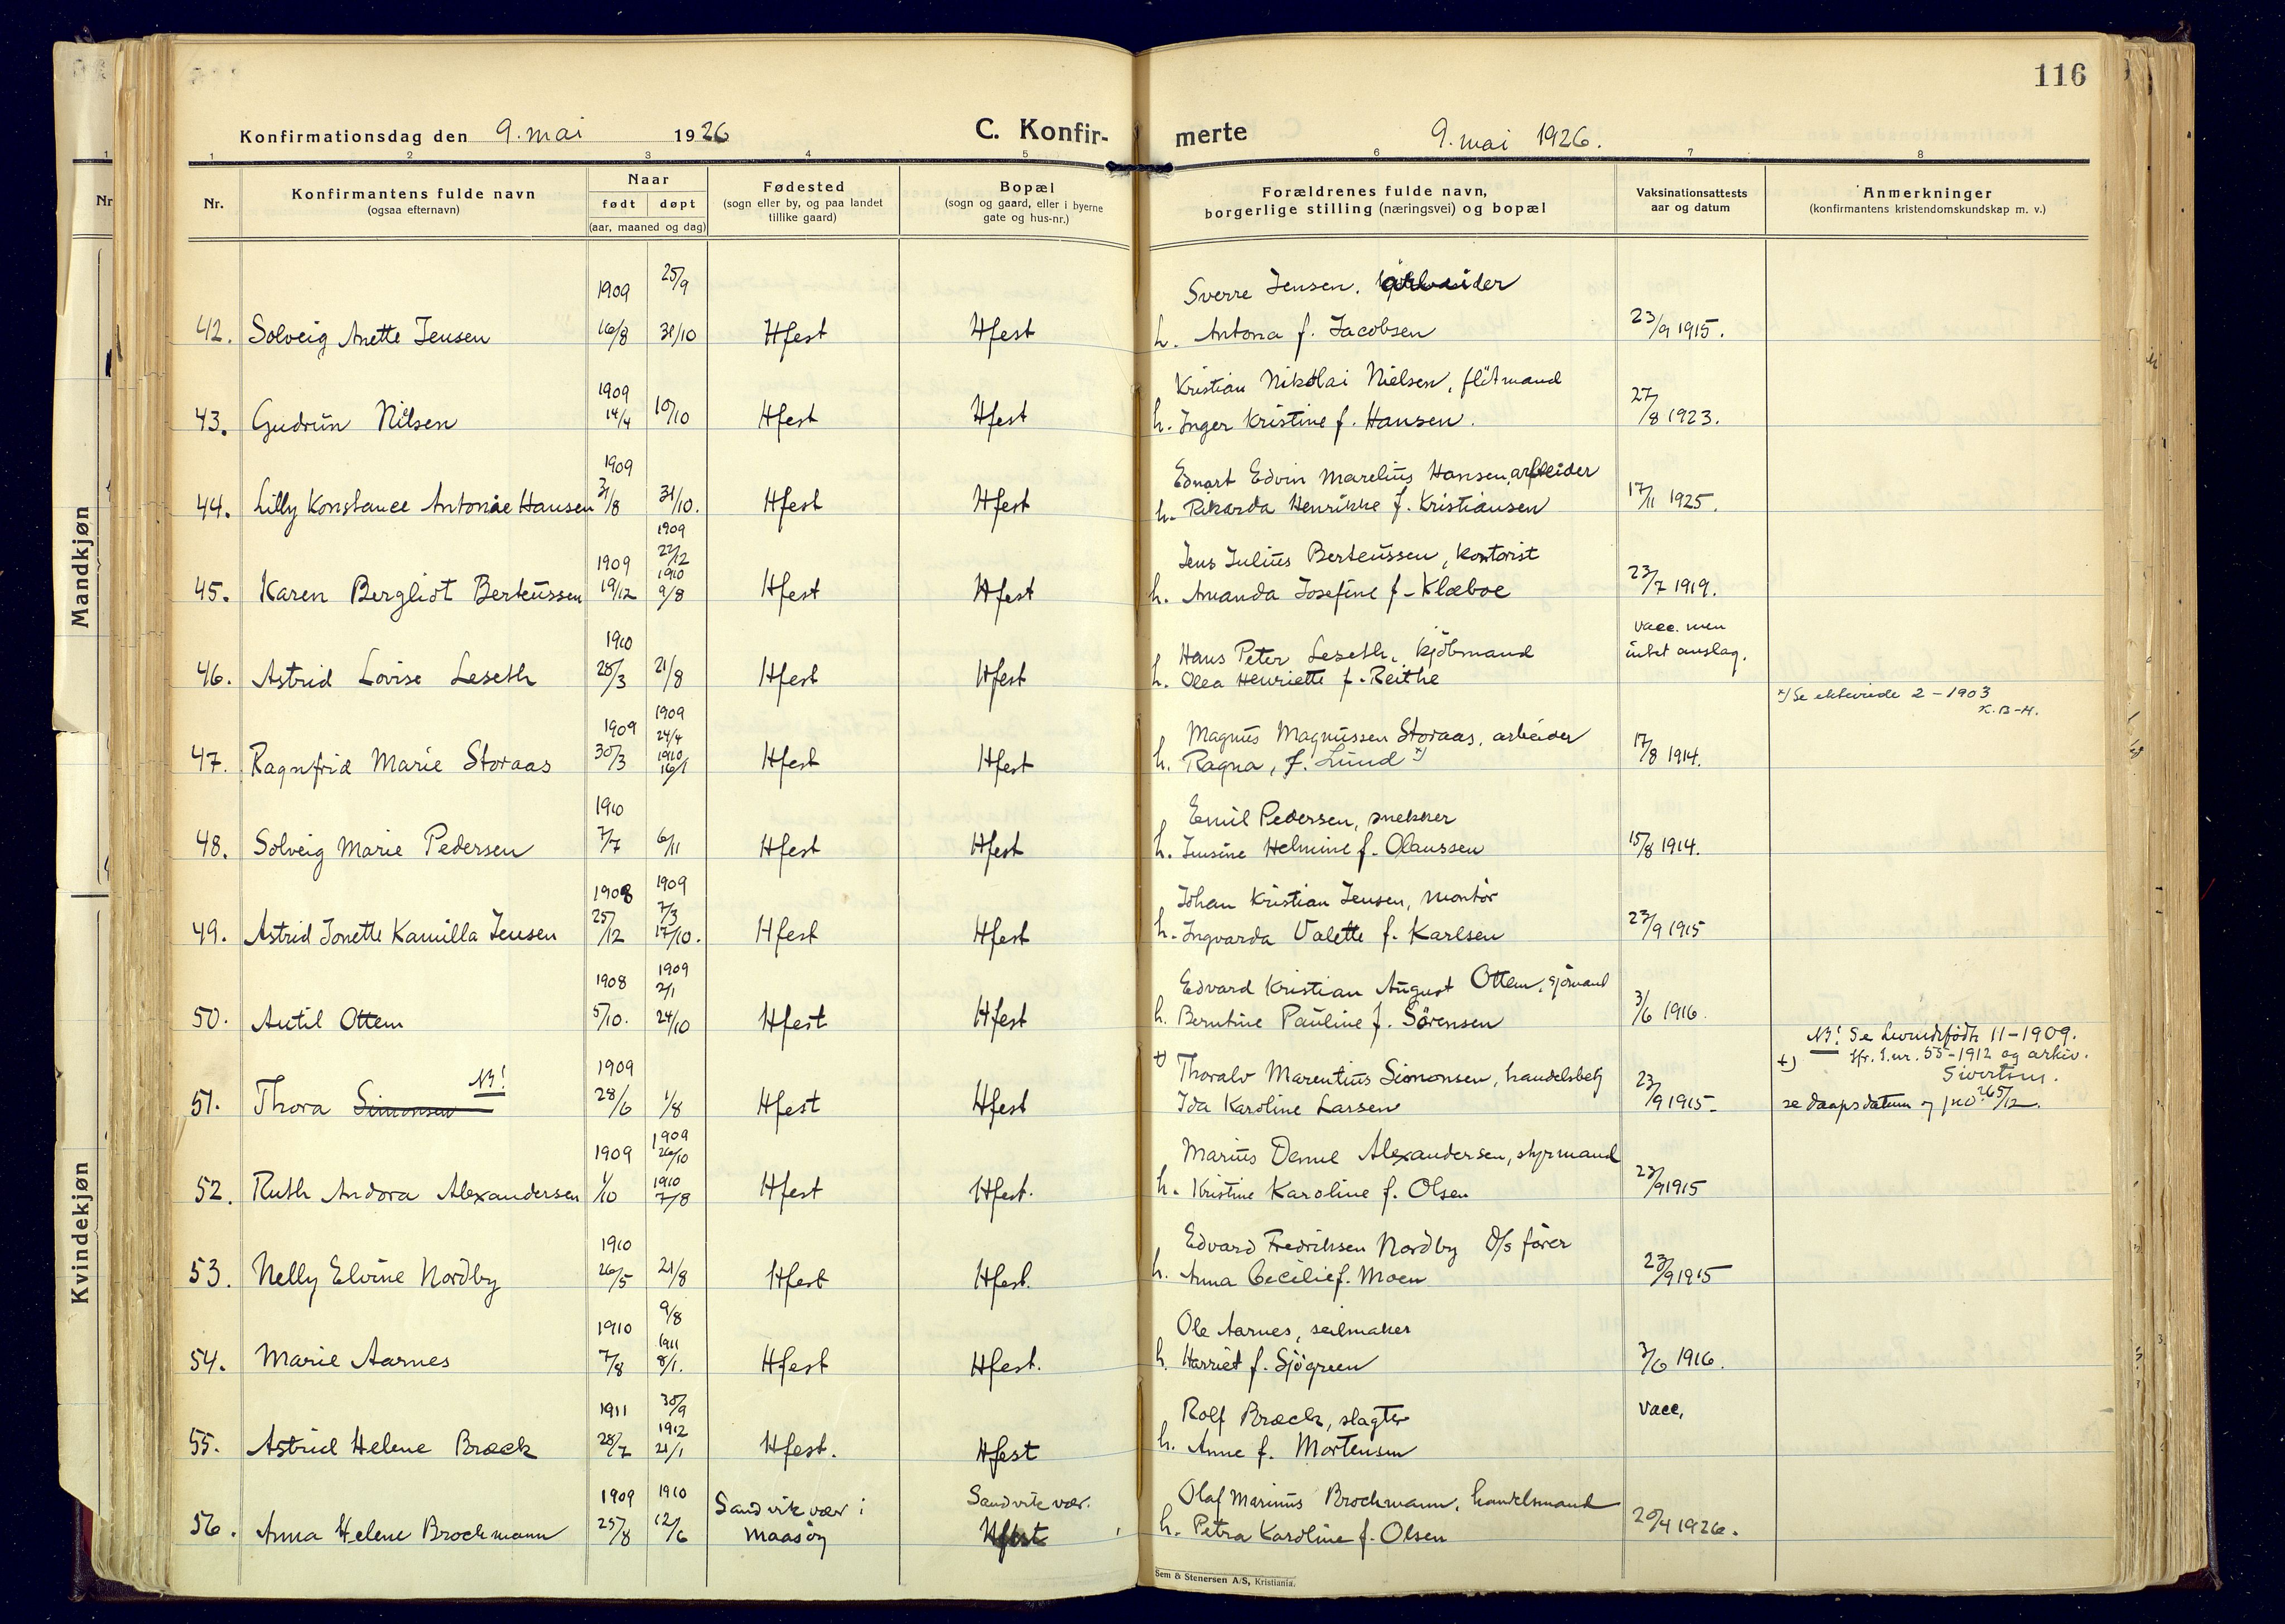 116
Konfirmationsdag den 9. mai 1926
C. Konfir-
merte
9. mai 1926.
1 2 3 4 5 6 7 8
Nr.
Konfirmantens fulde navn
(ogsaa efternavn)
Naar
født døpt
(aar, maaned og dag)
Fødested
(sogn eller by, og paa landet
tillike gaard)
Bopæl
(sogn og gaard, eller i byerne
gate og hus-nr.)
Forældrenes fulde navn,
borgerlige stilling (næringsvei) og bopæl
Vaksinationsattests
aar og datum
Anmerkninger
(konfirmantens kristendomskundskap m. v.)
1909 25/9 Sverre Jensen, arbeider
42. Solveig Anette Jensen 16/8 31/10 Hfest Hfest h. Antona f. Jacobsen 23/9 1915.
1909 Kristian Nikolai Nielsen, flötmand
43. Gudrun Nilsen 14/4 10/10 Hfest Hfest h. Inger Kristine f. Hansen. 27/8 1923.
1909 Ednart Edvin Marelius Hansen, arbeider
44. Lilly Konstance Antonie Hansen 31/8 31/10. Hfest Hfest h. Rikarda Henrikke f. Kristiansen 17/11 1925.
1909 1909 22/12 1910 Jens Julius Berteussen, kontorist
45. Karen Bergliot Berteussen 19/12 9/8 Hfest Hfest h. Amanda Josefine f. Klæboe 23/7 1919.
1910 Hans Peter Leseth, kjöbmand vacc. men
46. Astrid Lovise Leseth 28/3 21/8 Hfest Hfest h. Olea Henriette f. Reithe intet anslag.
x) Se ektevide 2 - 1903
K.B-H.
1909 1909 24/4 1910 Magnus Magnussen Storaas, arbeider
47. Ragnfrid Marie Storaas 30/3 16/1 Hfest Hfest h. Ragna, f. Lund x) 17/8 1914.
1910 Emil Pedersen, snekker
48. Solveig Marie Pedersen 7/7 6/11 Hfest Hfest h. Jensine Helmine f. Olaussen 15/8 1914.
1908 1909 7/3 Johan Kristian Jensen, montör
49. Astrid Jonette Kamilla Jensen 25/12 17/10. Hfest Hfest h. Ingvarda Valette f. Karlsen 23/9 1915
1908 1909 2/1 Edvard Kristian August Ottem, sjömand
50. Antil Ottem 5/10. 24/10 Hfest Hfest h. Berntine Pauline f. Sörensen 3/6 1916.
NB! Se levendefödte 11-1909.
+) Jfr. J.nr. 55-1912 og arkiv.
Sivertsen.
NB! 1909 +) Thoralv Marentius Simonsen, handelsbetj
51. Thora Simonsen 28/6 1/8 Hfest Hfest Ida Karoline Larsen 23/9 1915. se daapsdatum og
1909 1909 26/10 1910 Marius Alexandersen, styrmand
52. Ruth Andora Alexandersen 1/10 7/8 Hfest Hfest. h. Kristine Karoline f. Olsen 23/9 1915
1910 Edvard Fredriksen Nordby D/s förer
53. Nelly Elvine Nordby 26/5 21/8 Hfest Hfest. h. Anna Cecilie f. Moen 23/9 1915
1910 9/8 1911 Ole Aarnes, seilmaker
54. Marie Aarnes 7/8 8/1. Hfest Hfest. h. Harriet f. Sjögreen 3/6 1916.
1911 30/9 1912 Rolf Bræck, slagter vacc.
55. Astrid Helene Bræck 28/7 21/1 Hfest. Hfest h. Anne f. Mortensen
1909 1910 Sandvikvær i Sandvikvær. Olaf Marinus Brochmann, handelsmand
56. Anna Helene Brochmann 25/8 12/6 Maasöy Hfest h. Petra Karoline f. Olsen 20/4 1926.
Sem & Stenersen A/S, Kristiania.
Nr
Mandkjøn
Kvindekjøn